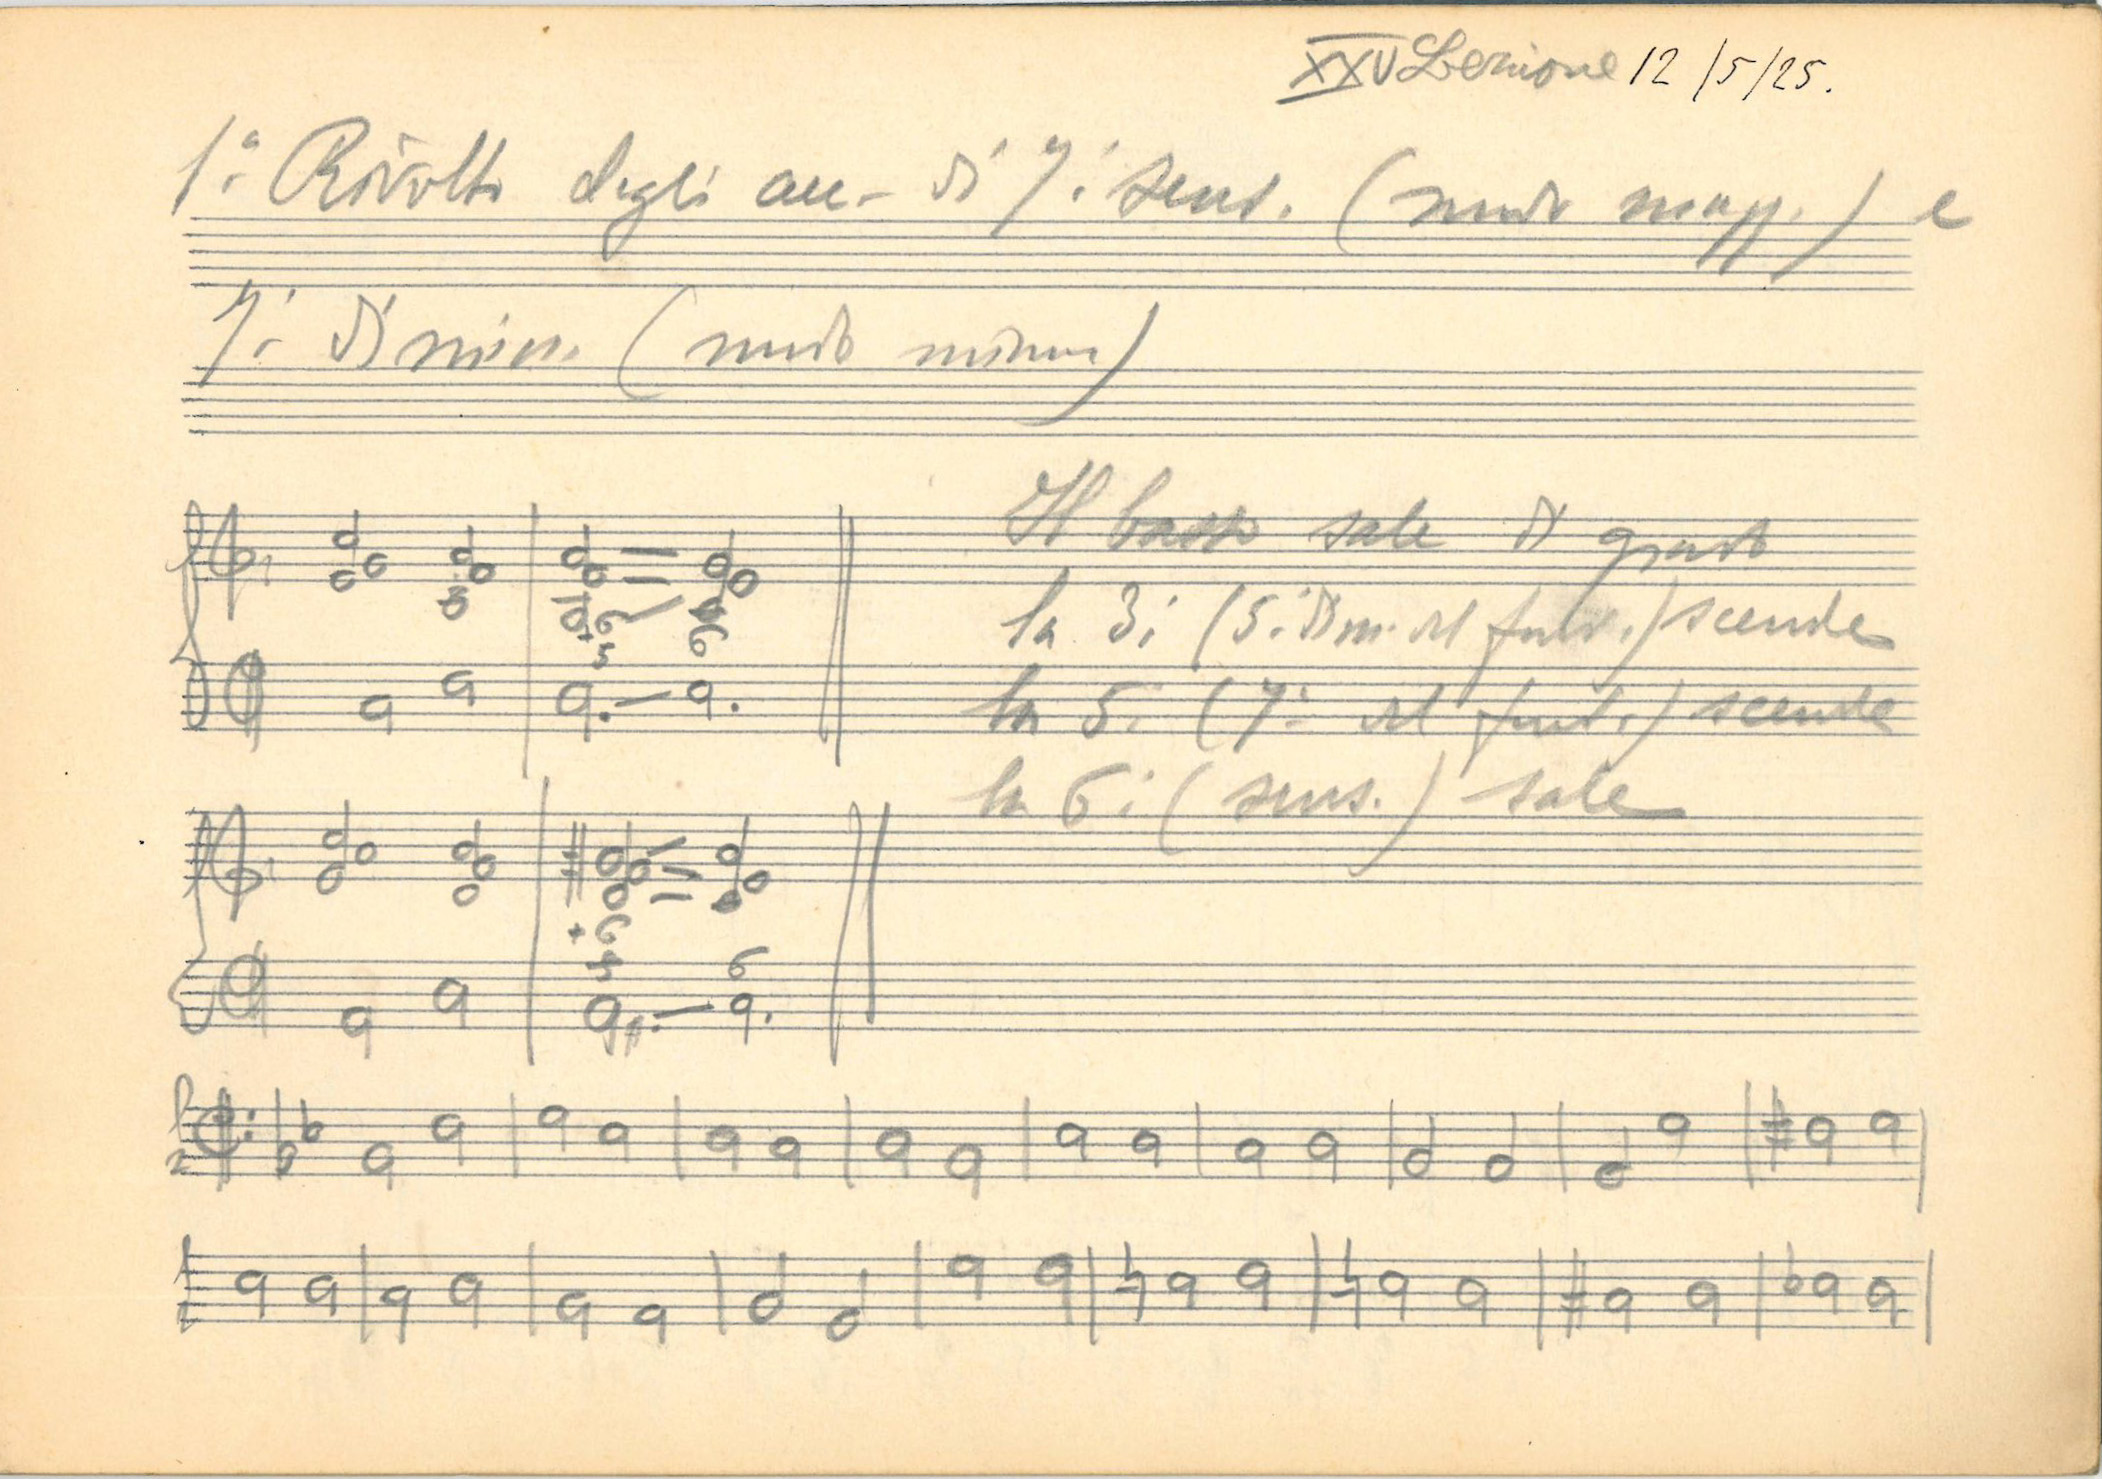 XXV Lezione 12/5/25.
1º Rivolto degli acc- di 7ª sens. (modo magg.) e
7ª dimin. (modo minore)
Il basso sale di grado
la 3ª (5ª dim. del fond.) scende
la 5ª (7ª del fond.) scende
la 6ª (sens.) sale